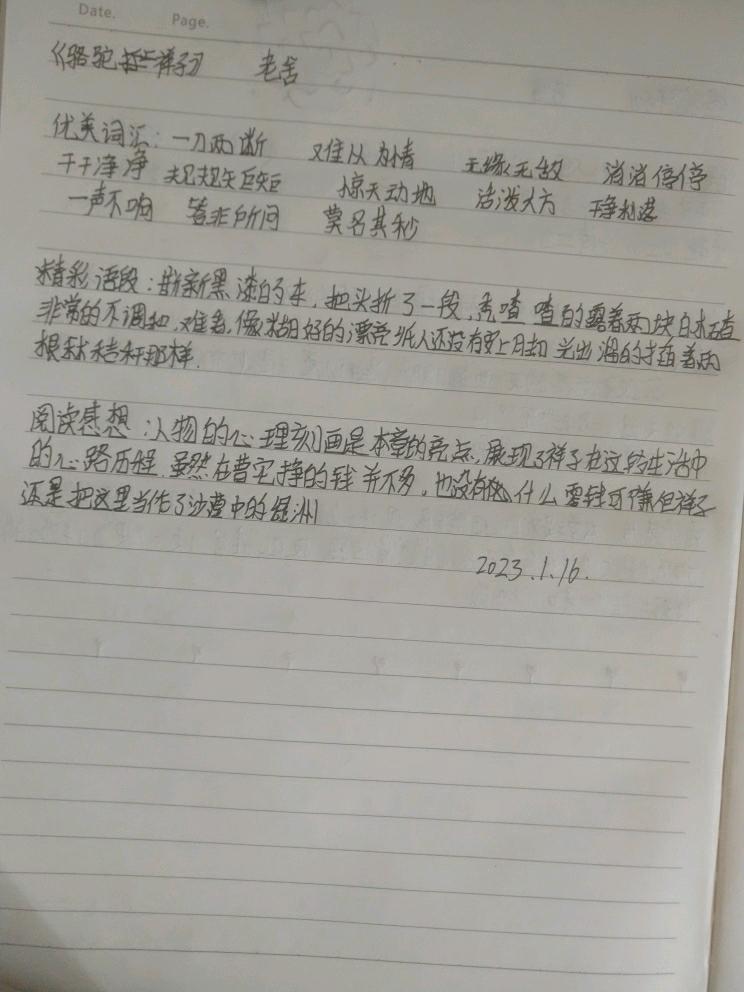 Date.    Page.
《骆驼祥子》 老舍
优美词汇：一刀两断 难以为情 无缘无故 消消停停
干干净净 规规矩矩 惊天动地 活泼大方 干净利落
一声不响 答非所问 莫名其秒
精彩语段：崭新黑漆的车，把头折了一段，秃喳喳的露着两块白木碴
非常的不调和，难看，像糊好的漂亮纸人还没有安上脚 光出溜的插着两
根秫秸秆那样.
阅读感想：人物的心理刻画是本章的亮点，展现了祥子在这转生活中
的心路历程，虽然在曹宅挣的钱并不多，也没有什么零钱可赚但祥子
还是把这里当作了沙漠中的绿洲
2023.1.16.